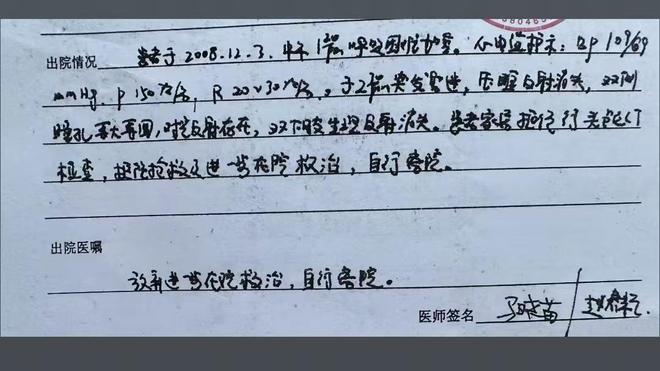 080460
出院情况 患者于2008.12.3.中午12 呼吸困难加重。心电监护示：Bp 109/69
mmHg. P 150次/分, R 20~30次/分。于2 突发昏迷, 压眶反射消失, 双侧
瞳孔等大等圆, 对光反射存在, 双下肢生理反射消失。患者家属拒绝行
检查, 拒绝抢救及进一步在院救治, 自行离院。
出院医嘱
放弃进一步在院救治, 自行离院。
医师签名